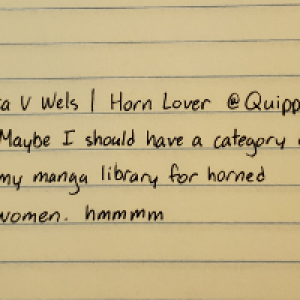 ta V Wels | Horn Lover @Quipp
Maybe I should have a category
my manga library for horned
women. hmmmm